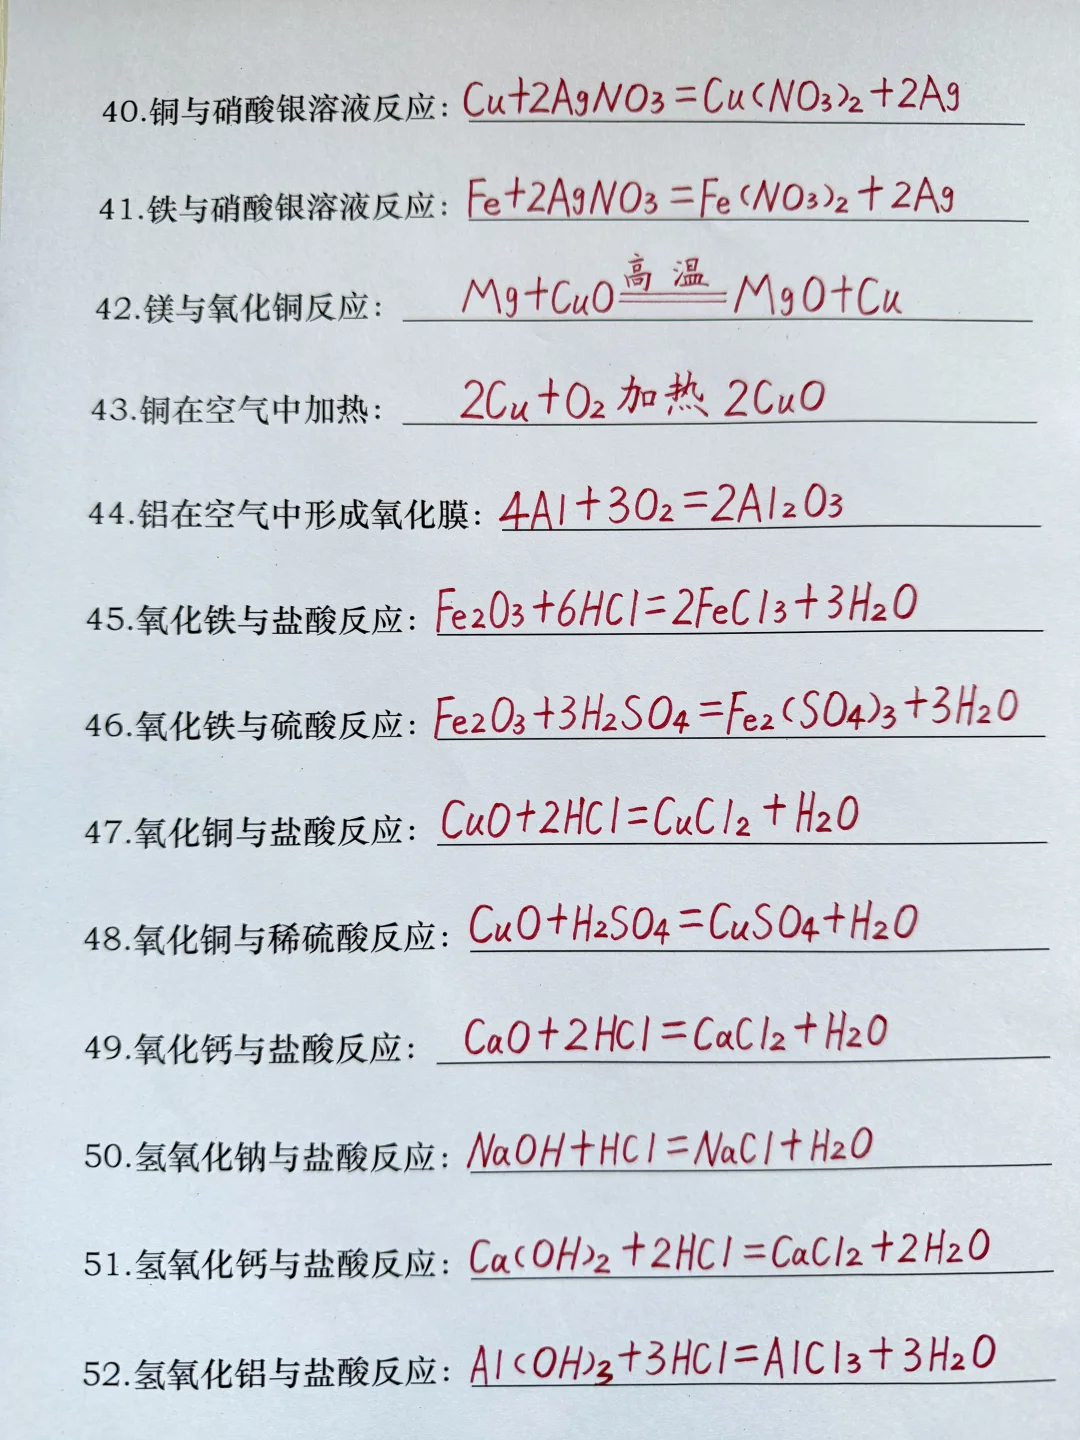 40.铜与硝酸银溶液反应: Cu+2AgNO₃=Cu(NO₃)₂+2Ag
41.铁与硝酸银溶液反应: Fe+2AgNO₃=Fe(NO₃)₂+2Ag
42.镁与氧化铜反应: Mg+CuO 高温 MgO+Cu
43.铜在空气中加热: 2Cu+O₂ 加热 2CuO
44.铝在空气中形成氧化膜: 4Al+3O₂=2Al₂O₃
45.氧化铁与盐酸反应: Fe₂O₃+6HCl=2FeCl₃+3H₂O
46.氧化铁与硫酸反应: Fe₂O₃+3H₂SO₄=Fe₂(SO₄)₃+3H₂O
47.氧化铜与盐酸反应: CuO+2HCl=CuCl₂+H₂O
48.氧化铜与稀硫酸反应: CuO+H₂SO₄=CuSO₄+H₂O
49.氧化钙与盐酸反应: CaO+2HCl=CaCl₂+H₂O
50.氢氧化钠与盐酸反应: NaOH+HCl=NaCl+H₂O
51.氢氧化钙与盐酸反应: Ca(OH)₂+2HCl=CaCl₂+2H₂O
52.氢氧化铝与盐酸反应: Al(OH)₃+3HCl=AlCl₃+3H₂O